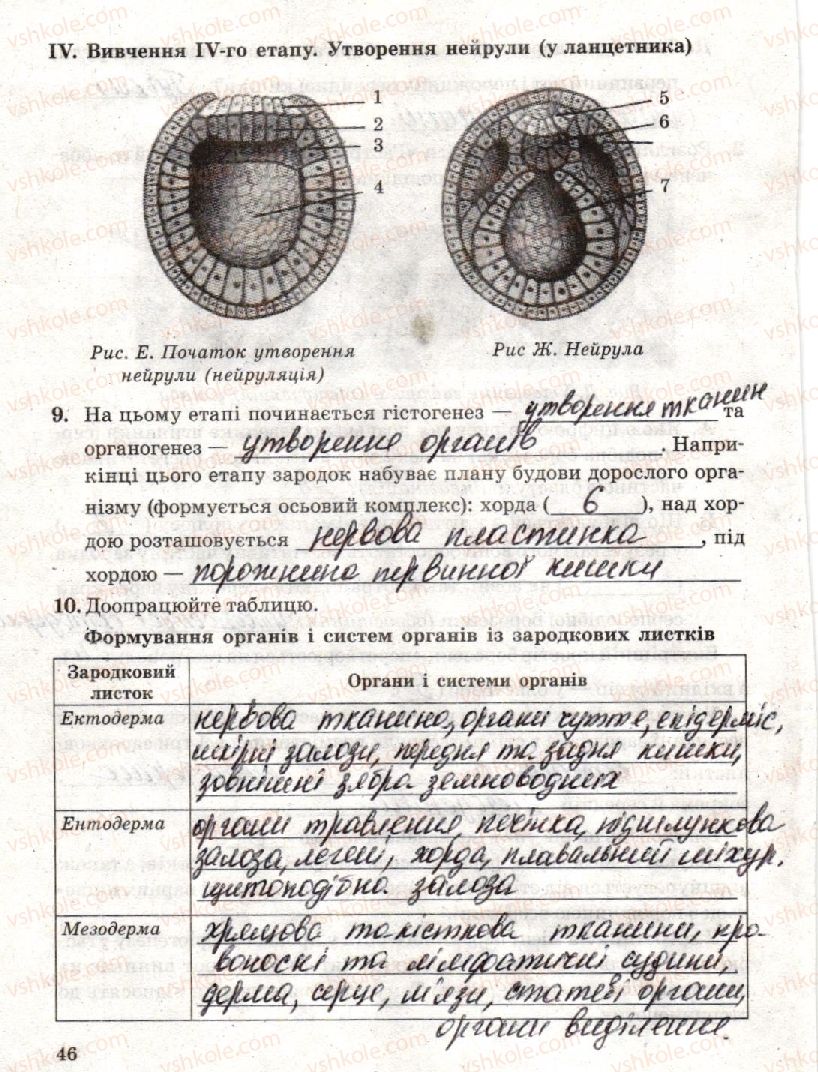 IV. Вивчення IV-го етапу. Утворення нейрули (у ланцетника)
1
2
3
4
5
6
7
Рис. Е. Початок утворення
нейрули (нейруляція)
Рис Ж. Нейрула
9. На цьому етапі починається гістогенез — утворення тканин та
органогенез — утворення органів. Напри-
кінці цього етапу зародок набуває плану будови дорослого орга-
нізму (формується осьовий комплекс): хорда ( 6 ), над хор-
дою розташовується нервова пластинка, під
хордою — порожнина первинної кишки
10. Доопрацюйте таблицю.
Формування органів і систем органів із зародкових листків
Зародковий
листок
Органи і системи органів
Ектодерма
нервова тканина, органи чуття, епідерміс,
шкірні залози, передня та задня кишки,
зовнішні зябра земноводних
Ентодерма
органи травлення, печінка, підшлункова
залоза, легені, хорда, плавальний міхур,
щитоподібна залоза
Мезодерма
хрящова та кісткова тканини, кро-
воносні та лімфатичні судини,
дерма, серце, м'язи, статеві органи,
органи виділення
46
vshkole.com